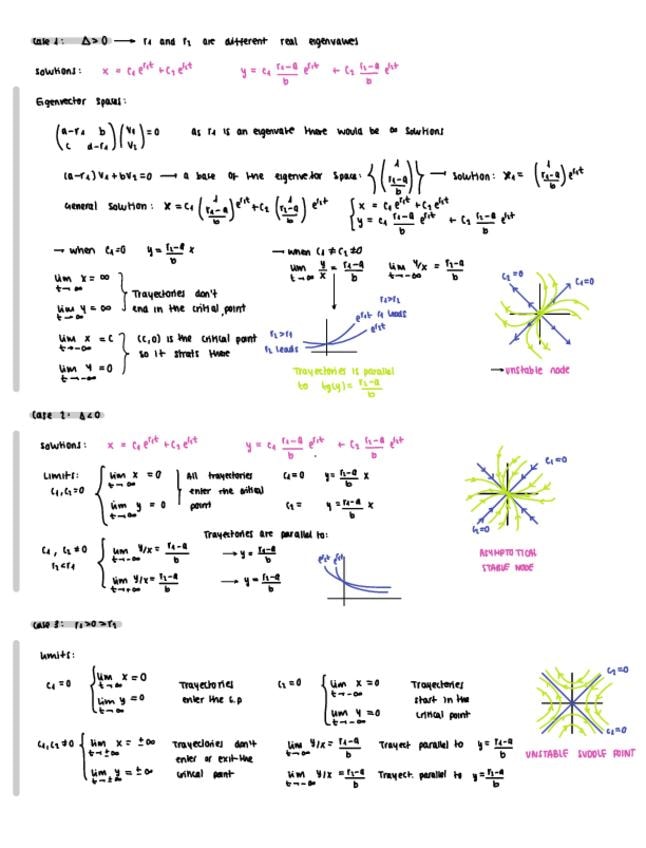 Case 1: Δ>0 → r₁ and r₂ are different real eigenvalues
Solutions: x = c₁ e^(r₁t) + c₂ e^(r₂t) y = c₁ (r₁-a)/b e^(r₁t) + c₂ (r₂-a)/b e^(r₂t)
Eigenvector Spaces:
(a-r₁ b / c d-r₁)(v₁ / v₂) = 0 as r₁ is an eigenvalue there would be ∞ solutions
(a-r₁)v₁ + bv₂ = 0 → a base of the eigenvector space: {(1 / (r₁-a)/b)} → solution: x₁ = (1 / (r₁-a)/b) e^(r₁t)
General solution: x = c₁ (1 / (r₁-a)/b) e^(r₁t) + c₂ (1 / (r₂-a)/b) e^(r₂t) { x = c₁ e^(r₁t) + c₂ e^(r₂t)
y = c₁ (r₁-a)/b e^(r₁t) + c₂ (r₂-a)/b e^(r₂t)
→ when c₁=0 y = (r₂-a)/b x
lim t→∞ x = ∞
lim t→∞ y = ∞
Trayectories don't
end in the critial point
lim t→-∞ x = c
lim t→-∞ y = 0
(c,0) is the critical point
so it strats there
→ when c₁ ≠ c₂ ≠ 0
lim t→∞ y/x = (r₁-a)/b lim t→-∞ y/x = (r₂-a)/b
r₁>r₂
e^(r₁t) r₁ leads
e^(r₂t)
r₂>r₁
r₂ leads
Trayectories is parallel
to tg(y) = (r₂-a)/b
c₂=0
c₁=0
→ unstable node
Case 2: Δ<0
Solutions: x = c₁ e^(r₁t) + c₂ e^(r₂t) y = c₁ (r₁-a)/b e^(r₁t) + c₂ (r₂-a)/b e^(r₂t)
Limits:
c₁,c₂=0
lim t→∞ x = 0
lim t→∞ y = 0
All trayectories
enter the critical
point
c₁=0 y = (r₂-a)/b x
c₂= y = (r₁-a)/b x
Trayectories are parallel to:
c₁, c₂ ≠ 0
r₂<r₁
lim t→-∞ y/x = (r₁-a)/b → y = (r₁-a)/b
lim t→+∞ y/x = (r₂-a)/b → y = (r₂-a)/b
e^(r₂t) e^(r₁t)
c₁=0
c₂=0
ASYMPTOTICAL
STABLE NODE
Case 3: r₁>0>r₂
Limits:
c₁=0
lim t→∞ x = 0
lim t→∞ y = 0
Trayectories
enter the c.p
c₂=0
lim t→-∞ x = 0
lim t→-∞ y = 0
Trayectories
start in the
critical point
c₁,c₂≠0
lim t→±∞ x = ±∞
lim t→±∞ y = ±∞
Trayectories don't
enter or exit the
critical point
lim t→∞ y/x = (r₁-a)/b Trayect parallel to y = (r₁-a)/b
lim t→-∞ y/x = (r₂-a)/b Trayect. parallel to y = (r₂-a)/b
c₂=0
c₁=0
UNSTABLE SUDDLE POINT